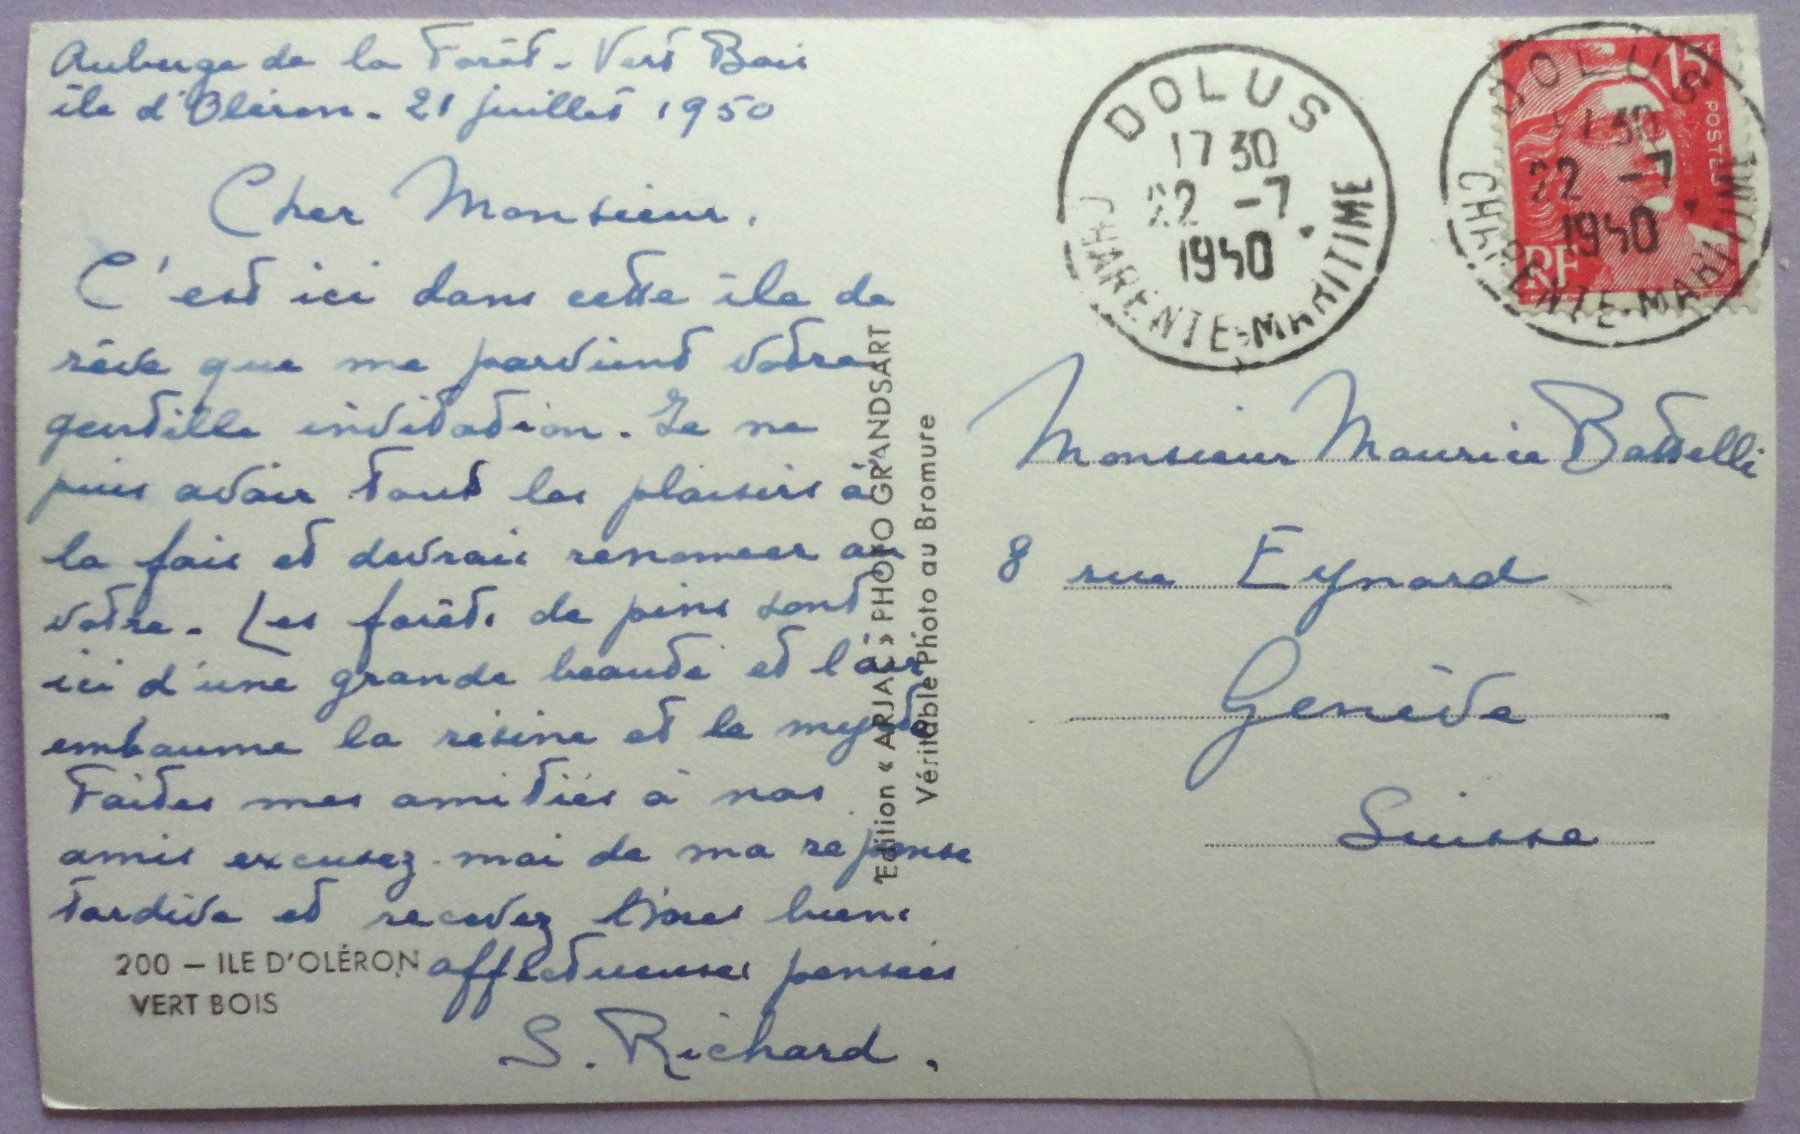 Auberge de la Forêt - Vert Bois
île d'Oléron - 21 juillet 1950
Cher Monsieur,
C'est ici dans cette île de
rêve que me parvient votre
gentille invitation. Je ne
puis avoir tout les plaisirs à
la fois et devrais renoncer au
votre. Les forêts de pins sont
ici d'une grande beauté et l'air
embaume la résine et le myrte
Faites mes amitiés à nos
amis excusez-moi de ma réponse
tardive et recevez tous biens
affectueuses pensées
S. Richard.
200 – ILE D'OLÉRON
VERT BOIS
Edition « ARJAC » PHOTO GRANDSART
Véritable Photo au Bromure
DOLUS
17 30
22 -7
1950
CHARENTE-MARITIME
15F
POSTES
RF
DOLUS
17 30
22 -7
1950
CHARENTE-MARITIME
Monsieur Maurice Battelli
8 rue Eynard
Genève
Suisse